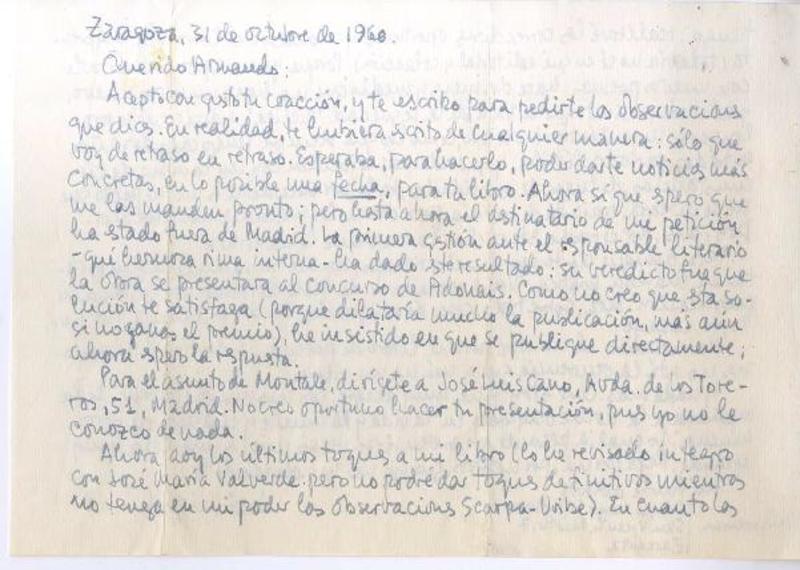 Zaragoza, 31 de octubre de 1960.
Querido Armando:
Acepto con gusto tu coacción, y te escribo para pedirte las observaciones
que dices. En realidad, te hubiera escrito de cualquier manera: sólo que
voy de retraso en retraso. Esperaba, para hacerlo, poder darte noticias más
concretas, en lo posible una fecha, para tu libro. Ahora sí que espero que
me las manden pronto; pero hasta ahora el destinatario de mi petición
ha estado fuera de Madrid. La primera gestión ante el responsable literario
-qué hermosa rima interna- ha dado este resultado: su veredicto fue que
la obra se presentara al concurso de Adonais. Como no creo que esta so-
lución te satisfaga (porque dilataría mucho la publicación, más aún
si no ganas el premio), he insistido en que se publique directamente;
ahora espero la respuesta.
Para el asunto de Montale, dirígete a José Luis Cano, Avda. de los Tore-
ros, 51, Madrid. No creo oportuno hacer tu presentación, pues yo no le
conozco de nada.
Ahora doy los últimos toques a mi libro (lo he revisado íntegro
con José María Valverde. pero no podré dar toques definitivos mientras
no tenga en mi poder las observaciones Scarpa-Uribe). En cuanto los